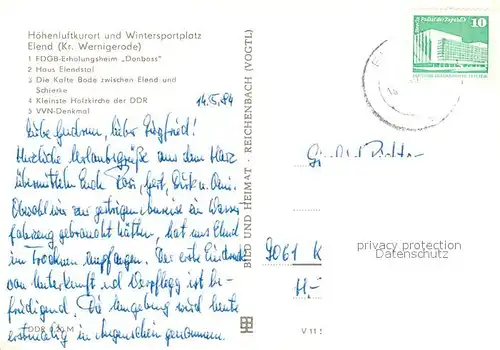 Höhenluftkurort und Wintersportplatz
Elend (Kr. Wernigerode)
1 FDGB-Erholungsheim „Donbass"
2 Haus Elendstal
3 Die Kalte Bode zwischen Elend und
Schierke
4 Kleinste Holzkirche der DDR
5 VVN-Denkmal
14.5.84
Liebe Gudrun, lieber Siegfried!
Herzliche Urlaubsgrüße aus dem Harz
übermitteln Euch Rosi, Gert, Dirk u. Omi.
Obwohl wir zur gestrigen Anreise ein Wasser
fahrzeug gebraucht hätten, hat uns Elend
im Trocknen empfangen. Der erste Eindruck
von Unterkunft und Verpflegg ist be-
friedigend. Die Umgebung wird heute
erstmalig in Augenschein genommen.
DDR 0,20 M
BILD UND HEIMAT · REICHENBACH (VOGTL)
V 11
10
9061 K
H.-
privacy protection
Datenschutz